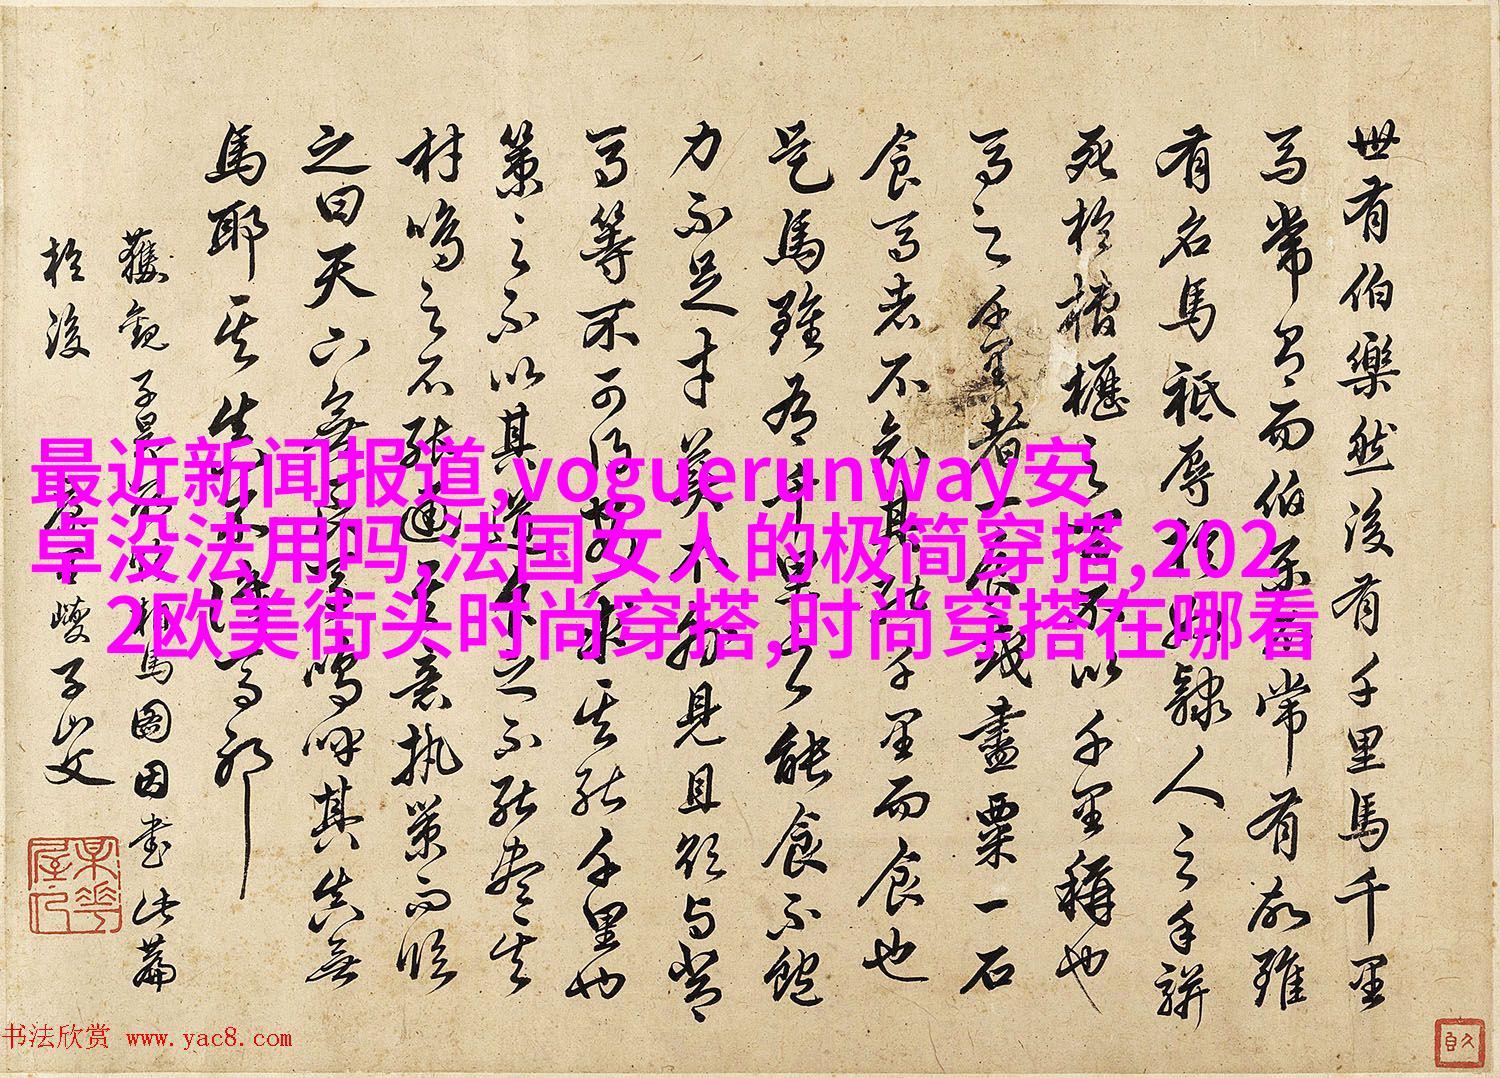 世有伯樂然後有千里馬千里
馬常有而伯樂不常有故雖
有名馬祗辱於奴隸人之手駢
死於槽櫪之間不以千里稱也
馬之千里者一食或盡粟一石
食馬者不知其能千里而食也
是馬雖有千里之能食不飽
力不足才美不外見且欲與常
馬等不可得安求其能千里也
策之不以其道食之不能盡其
材鳴之不能通其意執策而臨
之曰天下無馬嗚呼其真無
馬耶其真不識馬耶
獲觀子昂馬圖因書此篇
於後 子山
最近新闻报道,voguerunway安
卓没法用吗,法国女人的极简穿搭,202
2欧美街头时尚穿搭,时尚穿搭在哪看
书法欣赏 www.yac8.com